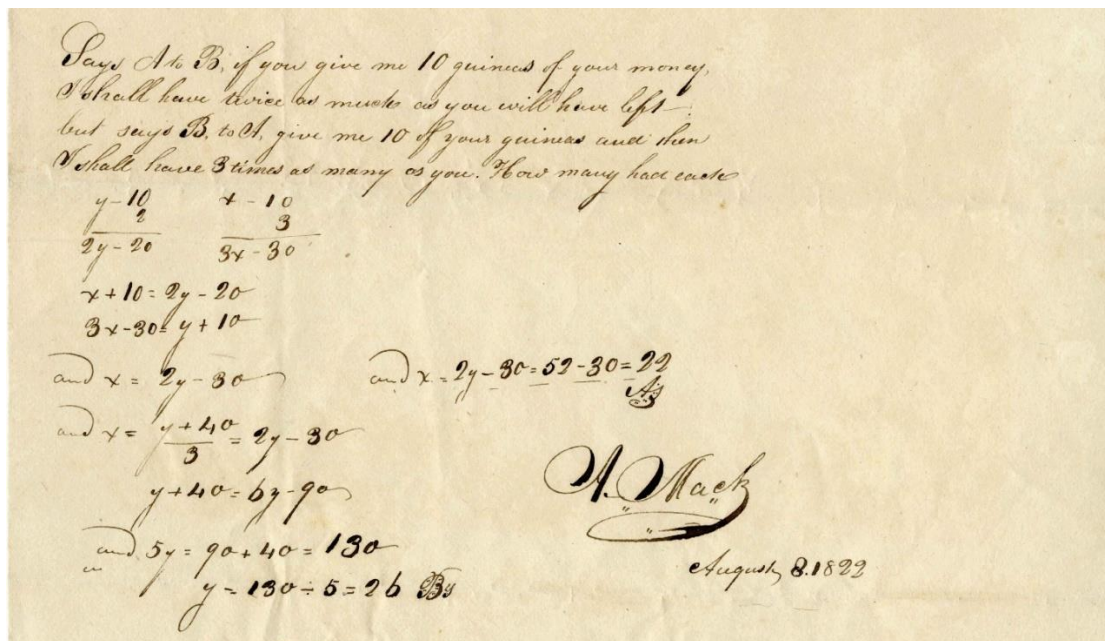 Says A to B, if you give me 10 guineas of your money,
I shall have twice as much as you will have left—
but says B, to A, give me 10 of your guineas and then
I shall have 3 times as many as you. How many had each
y-10 x-10
2 3
2y-20 3x-30
x+10=2y-20
3x-30=y+10
and x = 2y-30 and x=2y-30=52-30=22
A's
and x = y+40/3 = 2y-30
y+40=6y-90
and 5y=90+40=130
y=130÷5=26 B's
A. Mack
August, 8. 1822